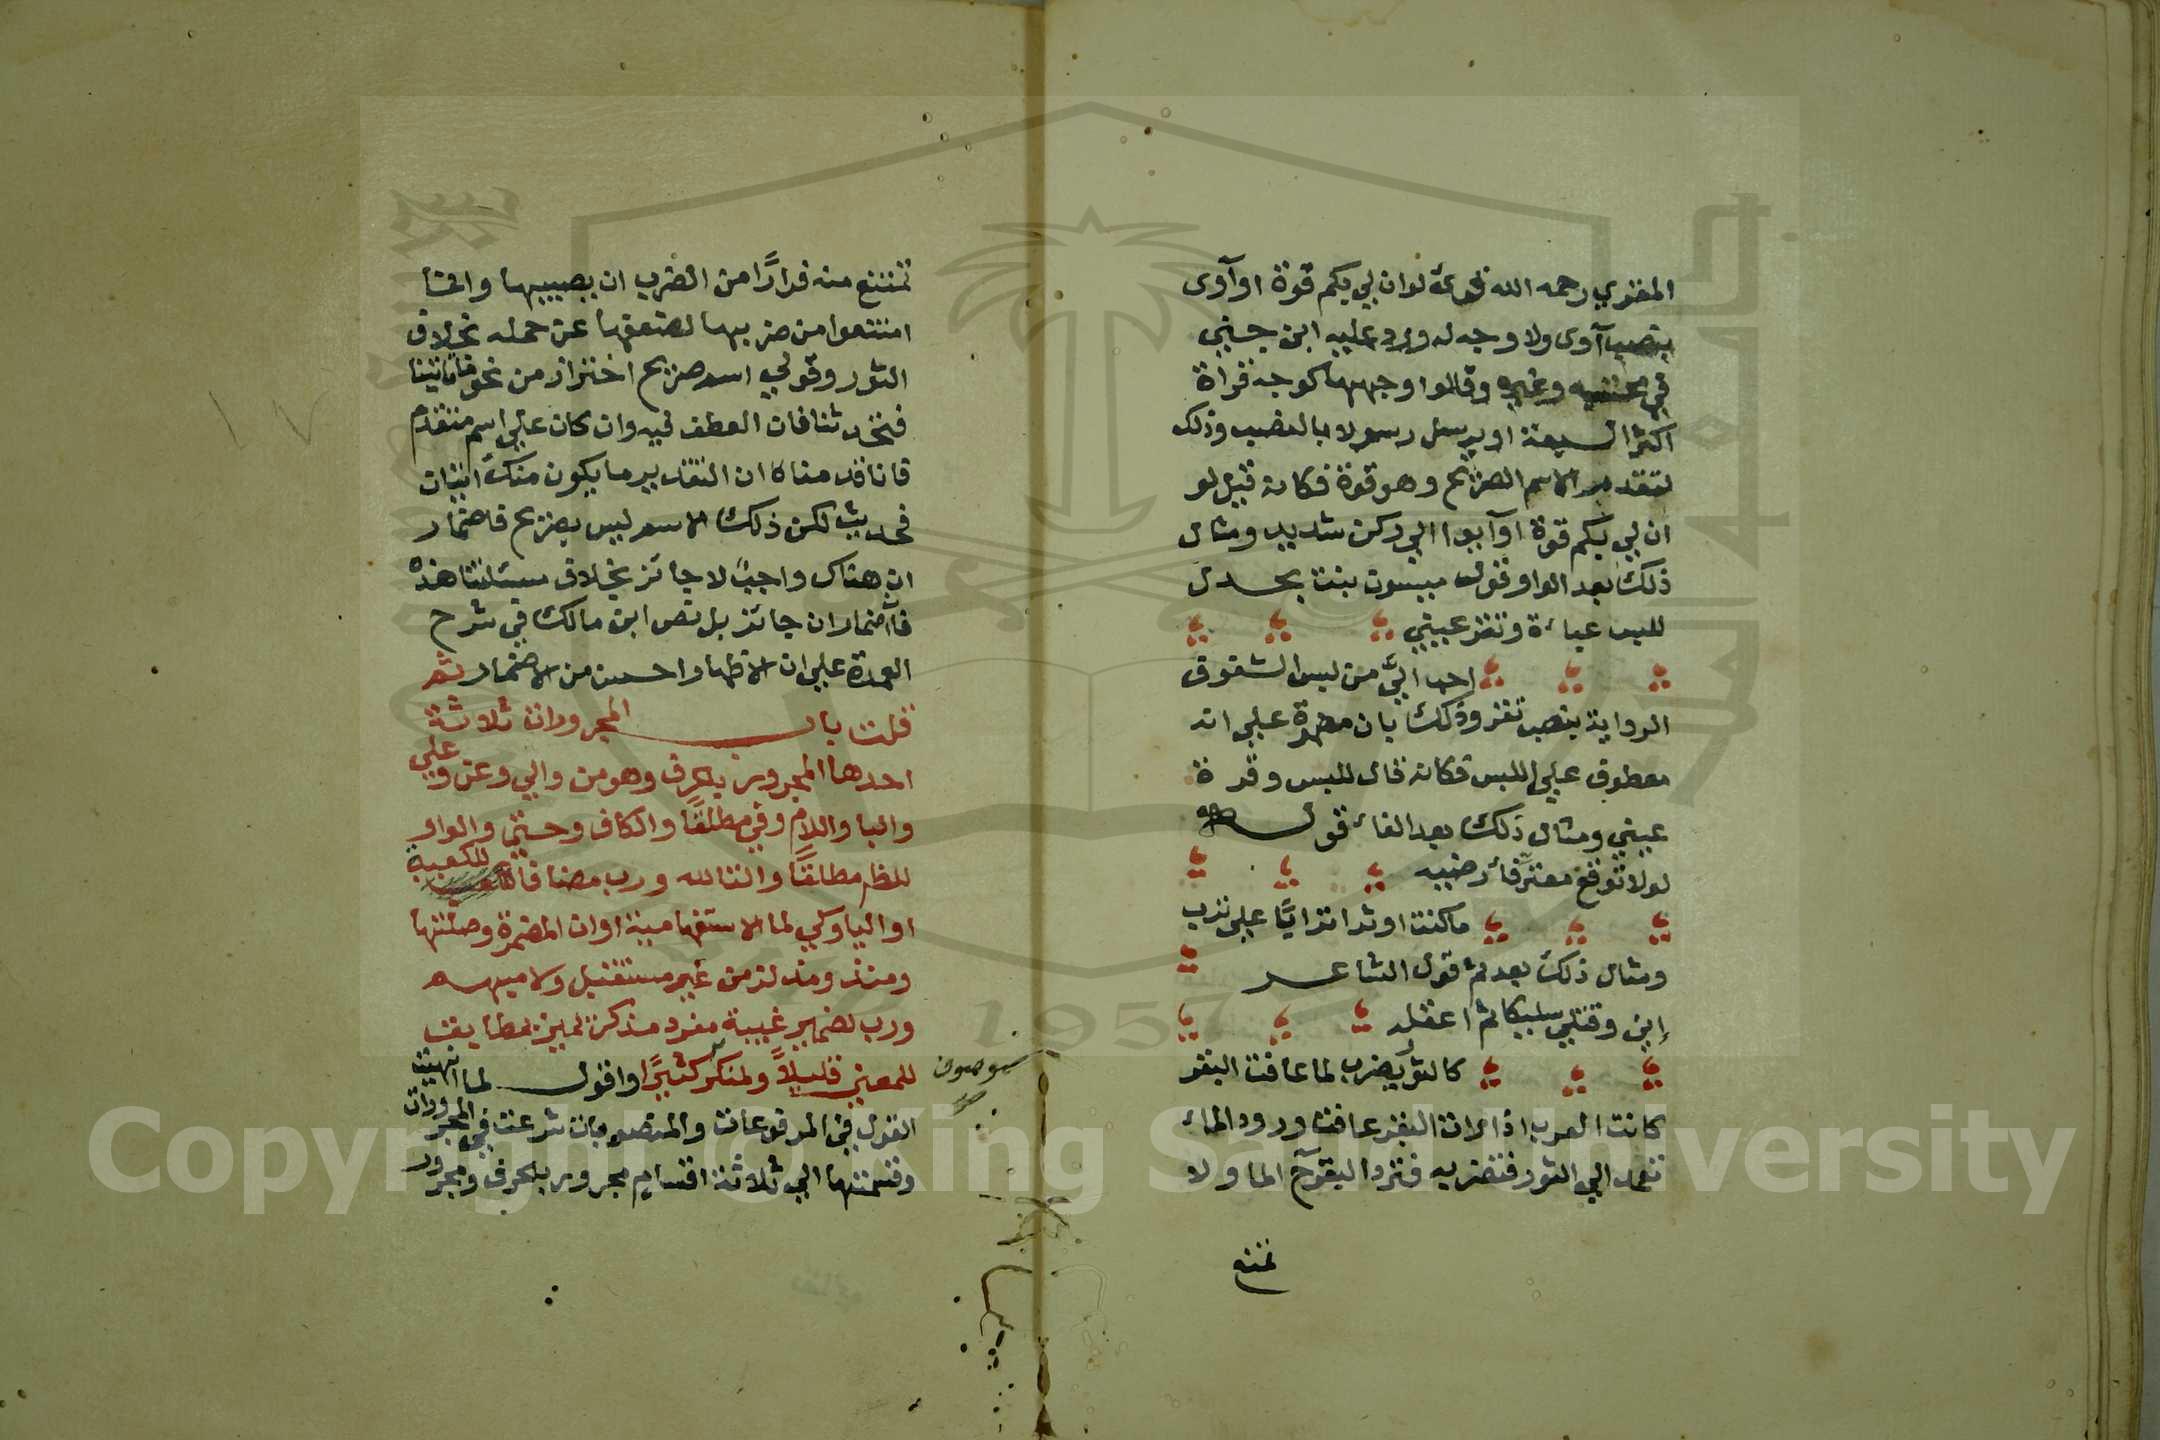 المغوي رحمه الله قراءة لو ان لي بكم قوة او آوى
بنصب آوى ولا وجه له ورد عليه ابن جني
في محتسبه وغيره وقالوا وجهها كوجه قراة
اكثر السبعة او يرسل رسولا بالنصب وذلك
لتقدم الاسم الصريح وهو قوة فكانه قيل لو
ان لي بكم قوة او آيوا الي ركن شديد ومثال
ذلك بعد الواو قول ميسون بنت بحدل
للبس عباءة وتقر عيني
احب اليّ من لبس الشفوف
الرواية بنصب تقر وذلك بان مضمرة علي انه
معطوف علي اللبس فكانه قال للبس وقرة
عيني ومثال ذلك بعد الفاء قوله
لولا توقع معترّ فارضيه
ما كنت اوثر اترابًا علي ترب
ومثال ذلك بعد ثم قول الشاعر
إني وقتلي سليكا ثم اعقله
كالثور يضرب لما عافت البقر
كانت العرب اذا رات البقر عافت ورود الماء
تعمد الي الثور فتضربه فترد البقر ح الما ولا
تمتنع
تمتنع منه فرارًا من الضرب ان يصيبها وانما
امتنعوا من ضربها لضعفها عن حمله بخلاف
الثور وقولي اسم صريح احتراز من نحو ما تاتينا
فتحدثنا فان العطف فيه وان كان علي اسم متقدم
فانا قدمنا ان التقدير ما يكون منك اتيان
فحديث لكن ذلك الاسم ليس بصريح فاضمار
ان هناك واجب لا جائز بخلاف مسئلتنا هذه
فاضمار ان جائز بل نص ابن مالك في شرح
العمدة علي ان الاظهار احسن من الاضمار ثم
قلت باب المجرورات ثلاثة
احدها المجرور بالحرف وهو من والي وعن وعلي
والبا واللام وفي مطلقًا والكاف وحتي والواو
للظاهر مطلقًا والتا لله ورب مضافا للكعبة
او اليا وكي لما الاستفهامية او ان المضمرة وصلتها
ومنذ ومذ لزمن غير مستقبل ولا مبهم
ورب لضمير غيبة مفرد مذكر يميز بمطابق
للمعني قليلاً ولمنكر كثيرًا واقول لما انهيت
القول في المرفوعات والمنصوبات شرعت في المجرورات
وقسمتها الي ثلاثة اقسام مجرور بالحرف ومجرور
King Saud University
Copyright © King Saud University
1957